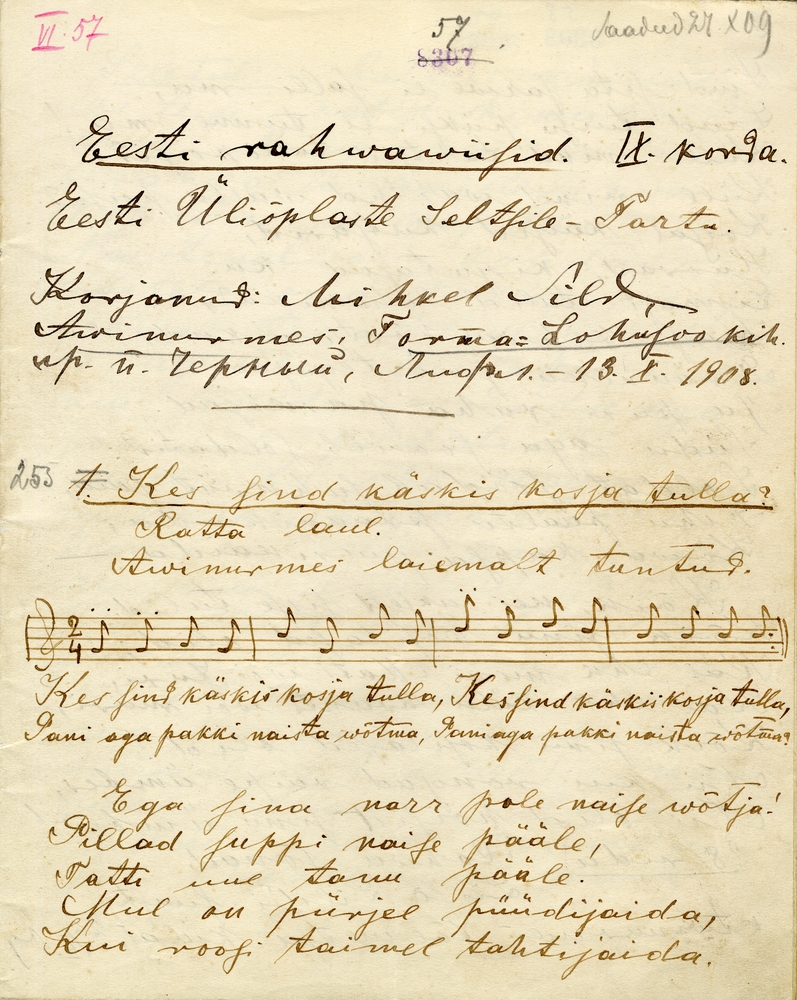 VI. 57
57
8307
Saadud 27 X 09
Eesti rahwawiisid. IX. korda.
Eesti Üliõplaste Seltsile - Tartu.
Korjanud: Mihkel Sild,
Awinurmes, Torma-Lohusoo kih.
п. Черный, - 13. X. 1908.
253 1. Kes sind käskis kosja tulla?
Ratta laul.
Awinurmes laiemalt tuntud.
2/4
Kes sind käskis kosja tulla, Kes sind käskis kosja tulla,
Pani aga pakki naista wõtma, Pani aga pakki naista wõtma?
Ega sina narr pole naise wõtja!
Pillad suppi naise pääle,
Tatti uue tanu pääle.
Mul on pürjel püüdijaida,
Kui roogi taimel tahtijaida.